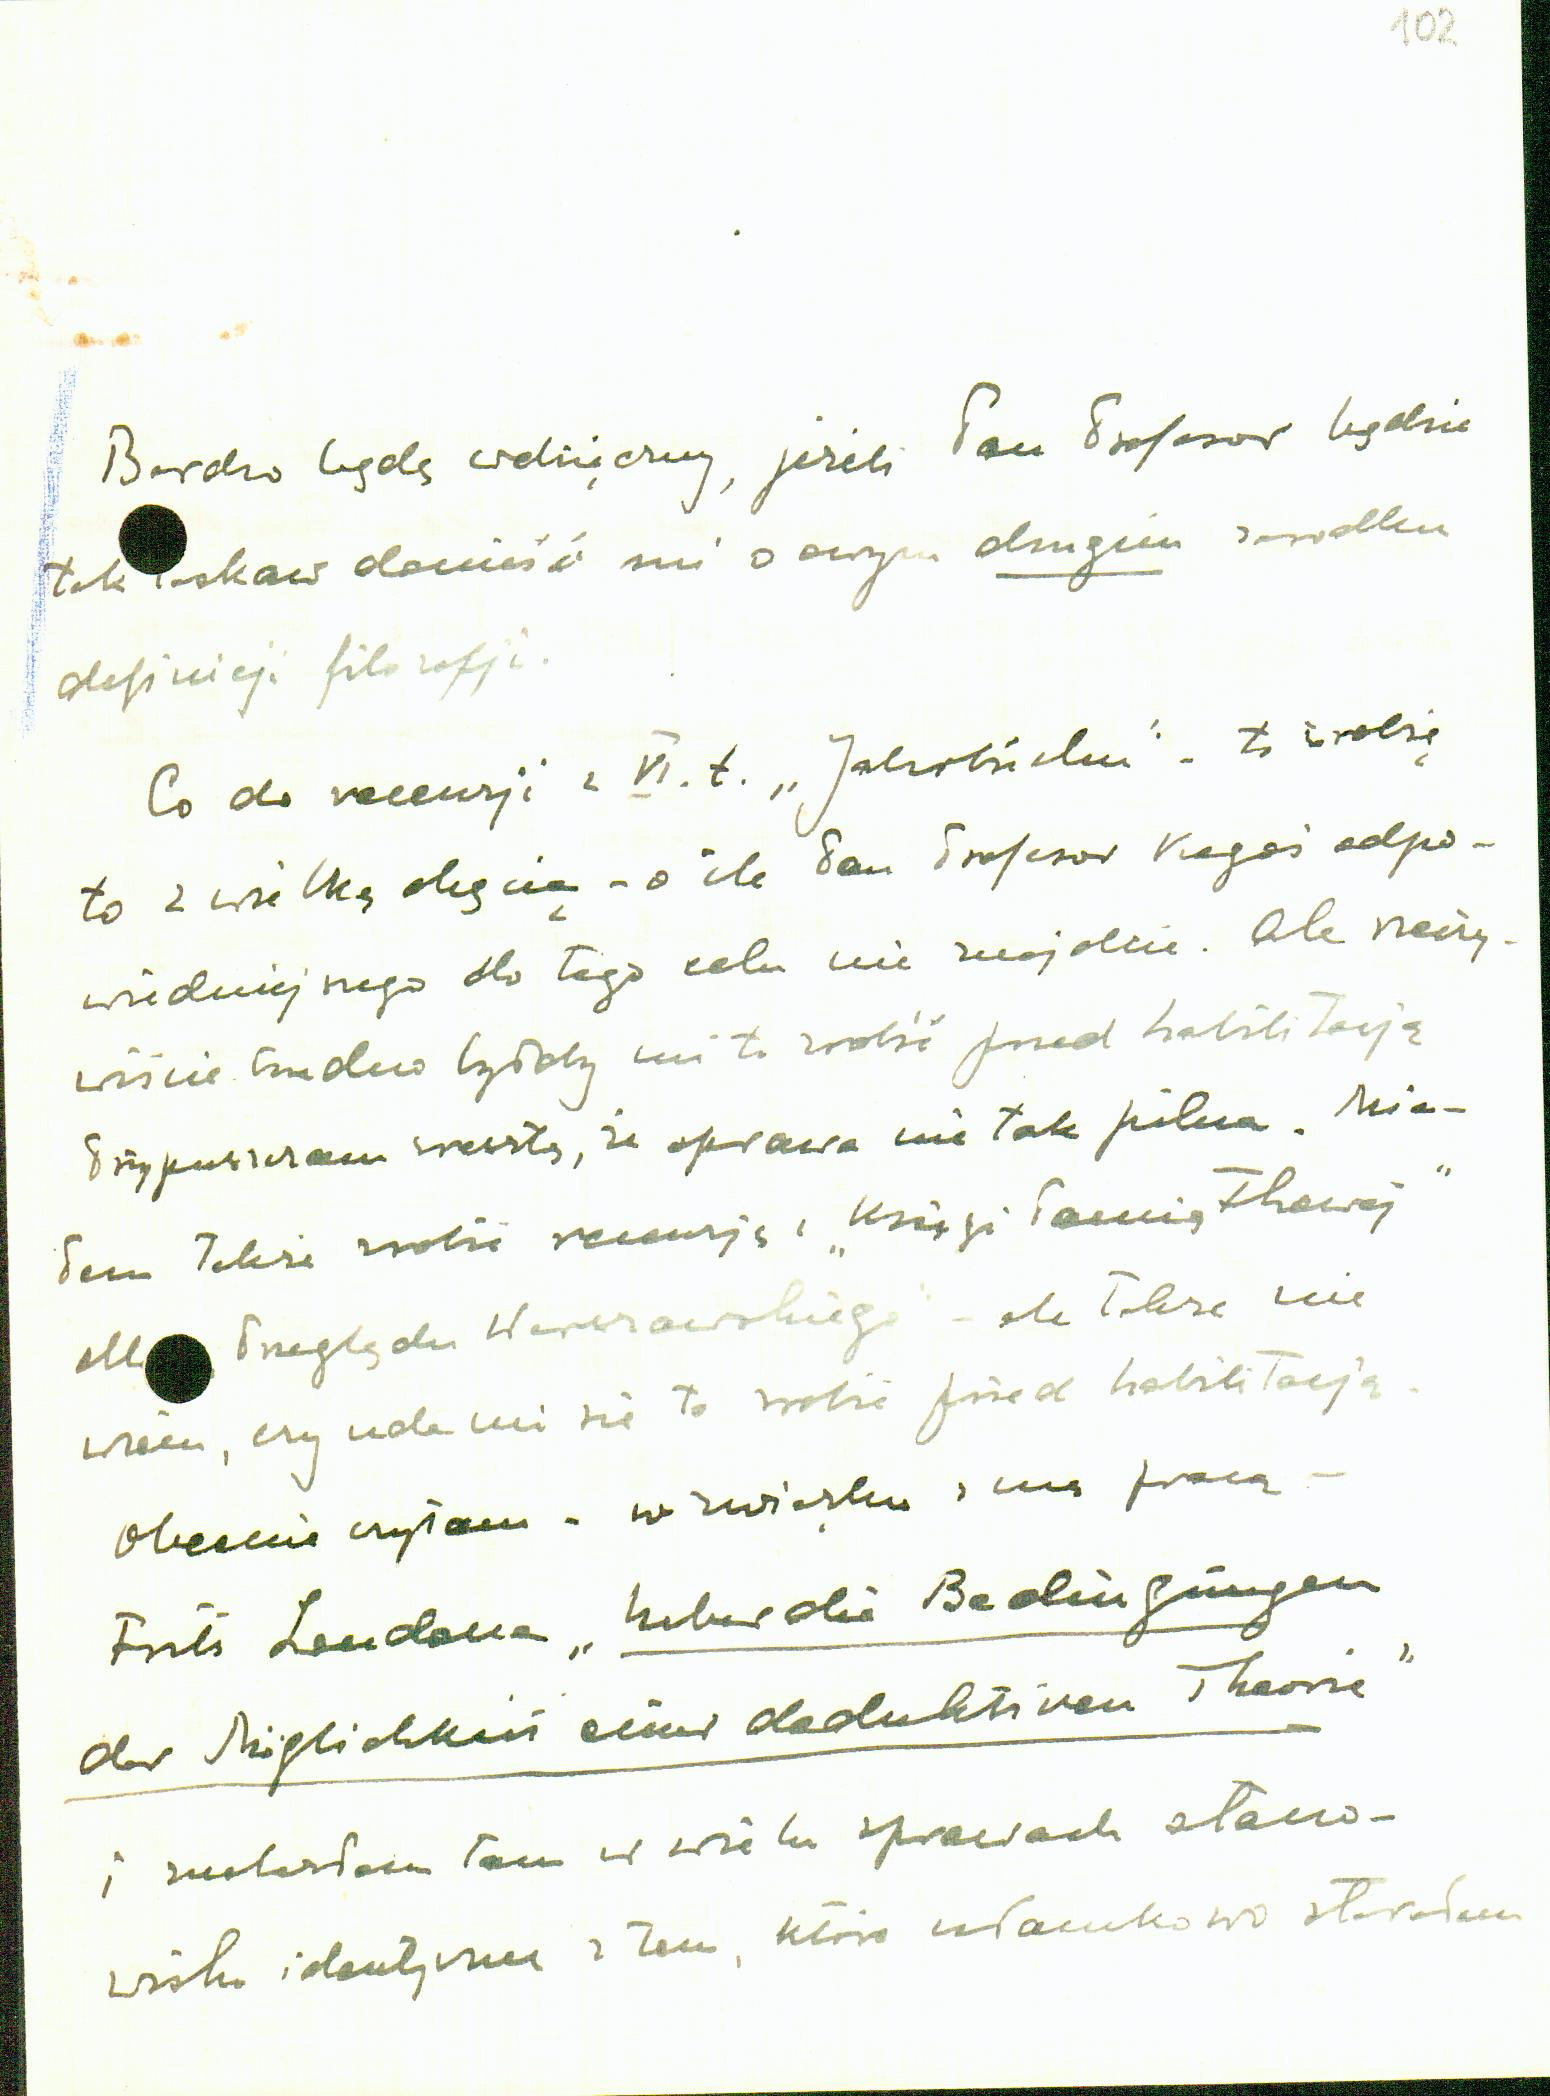 102
Bardzo będę wdzięczny, jeżeli Pan Profesor będzie
tak łaskaw donieść mi o owym drugim zarodku
definicji filozofji.
Co do recenzji z VI. t. „Jahrbüchu" - to zrobię
to z wielką chęcią - o ile Pan Profesor kogoś odpo-
wiedniejszego dla tego celu nie znajdzie. Ale oczy-
wiście trudno byłoby mi to zrobić przed habilitacją
Przypuszczam zresztą, że sprawa nie tak pilna. Mia-
łem także zrobić recenzję z „Księgi Pamiątkowej"
dla Przeglądu Warszawskiego" - ale także nie
wiem, czy uda mi się to zrobić przed habilitacją.
Obecnie czytam - w związku z mą pracą -
Fritz Londona „Ueber die Bedingungen
der Möglichkeit einer deduktiven Theorie"
i znalazłem tam w wielu sprawach stano-
wisko identyczne z tem, które ułamkowo starałem